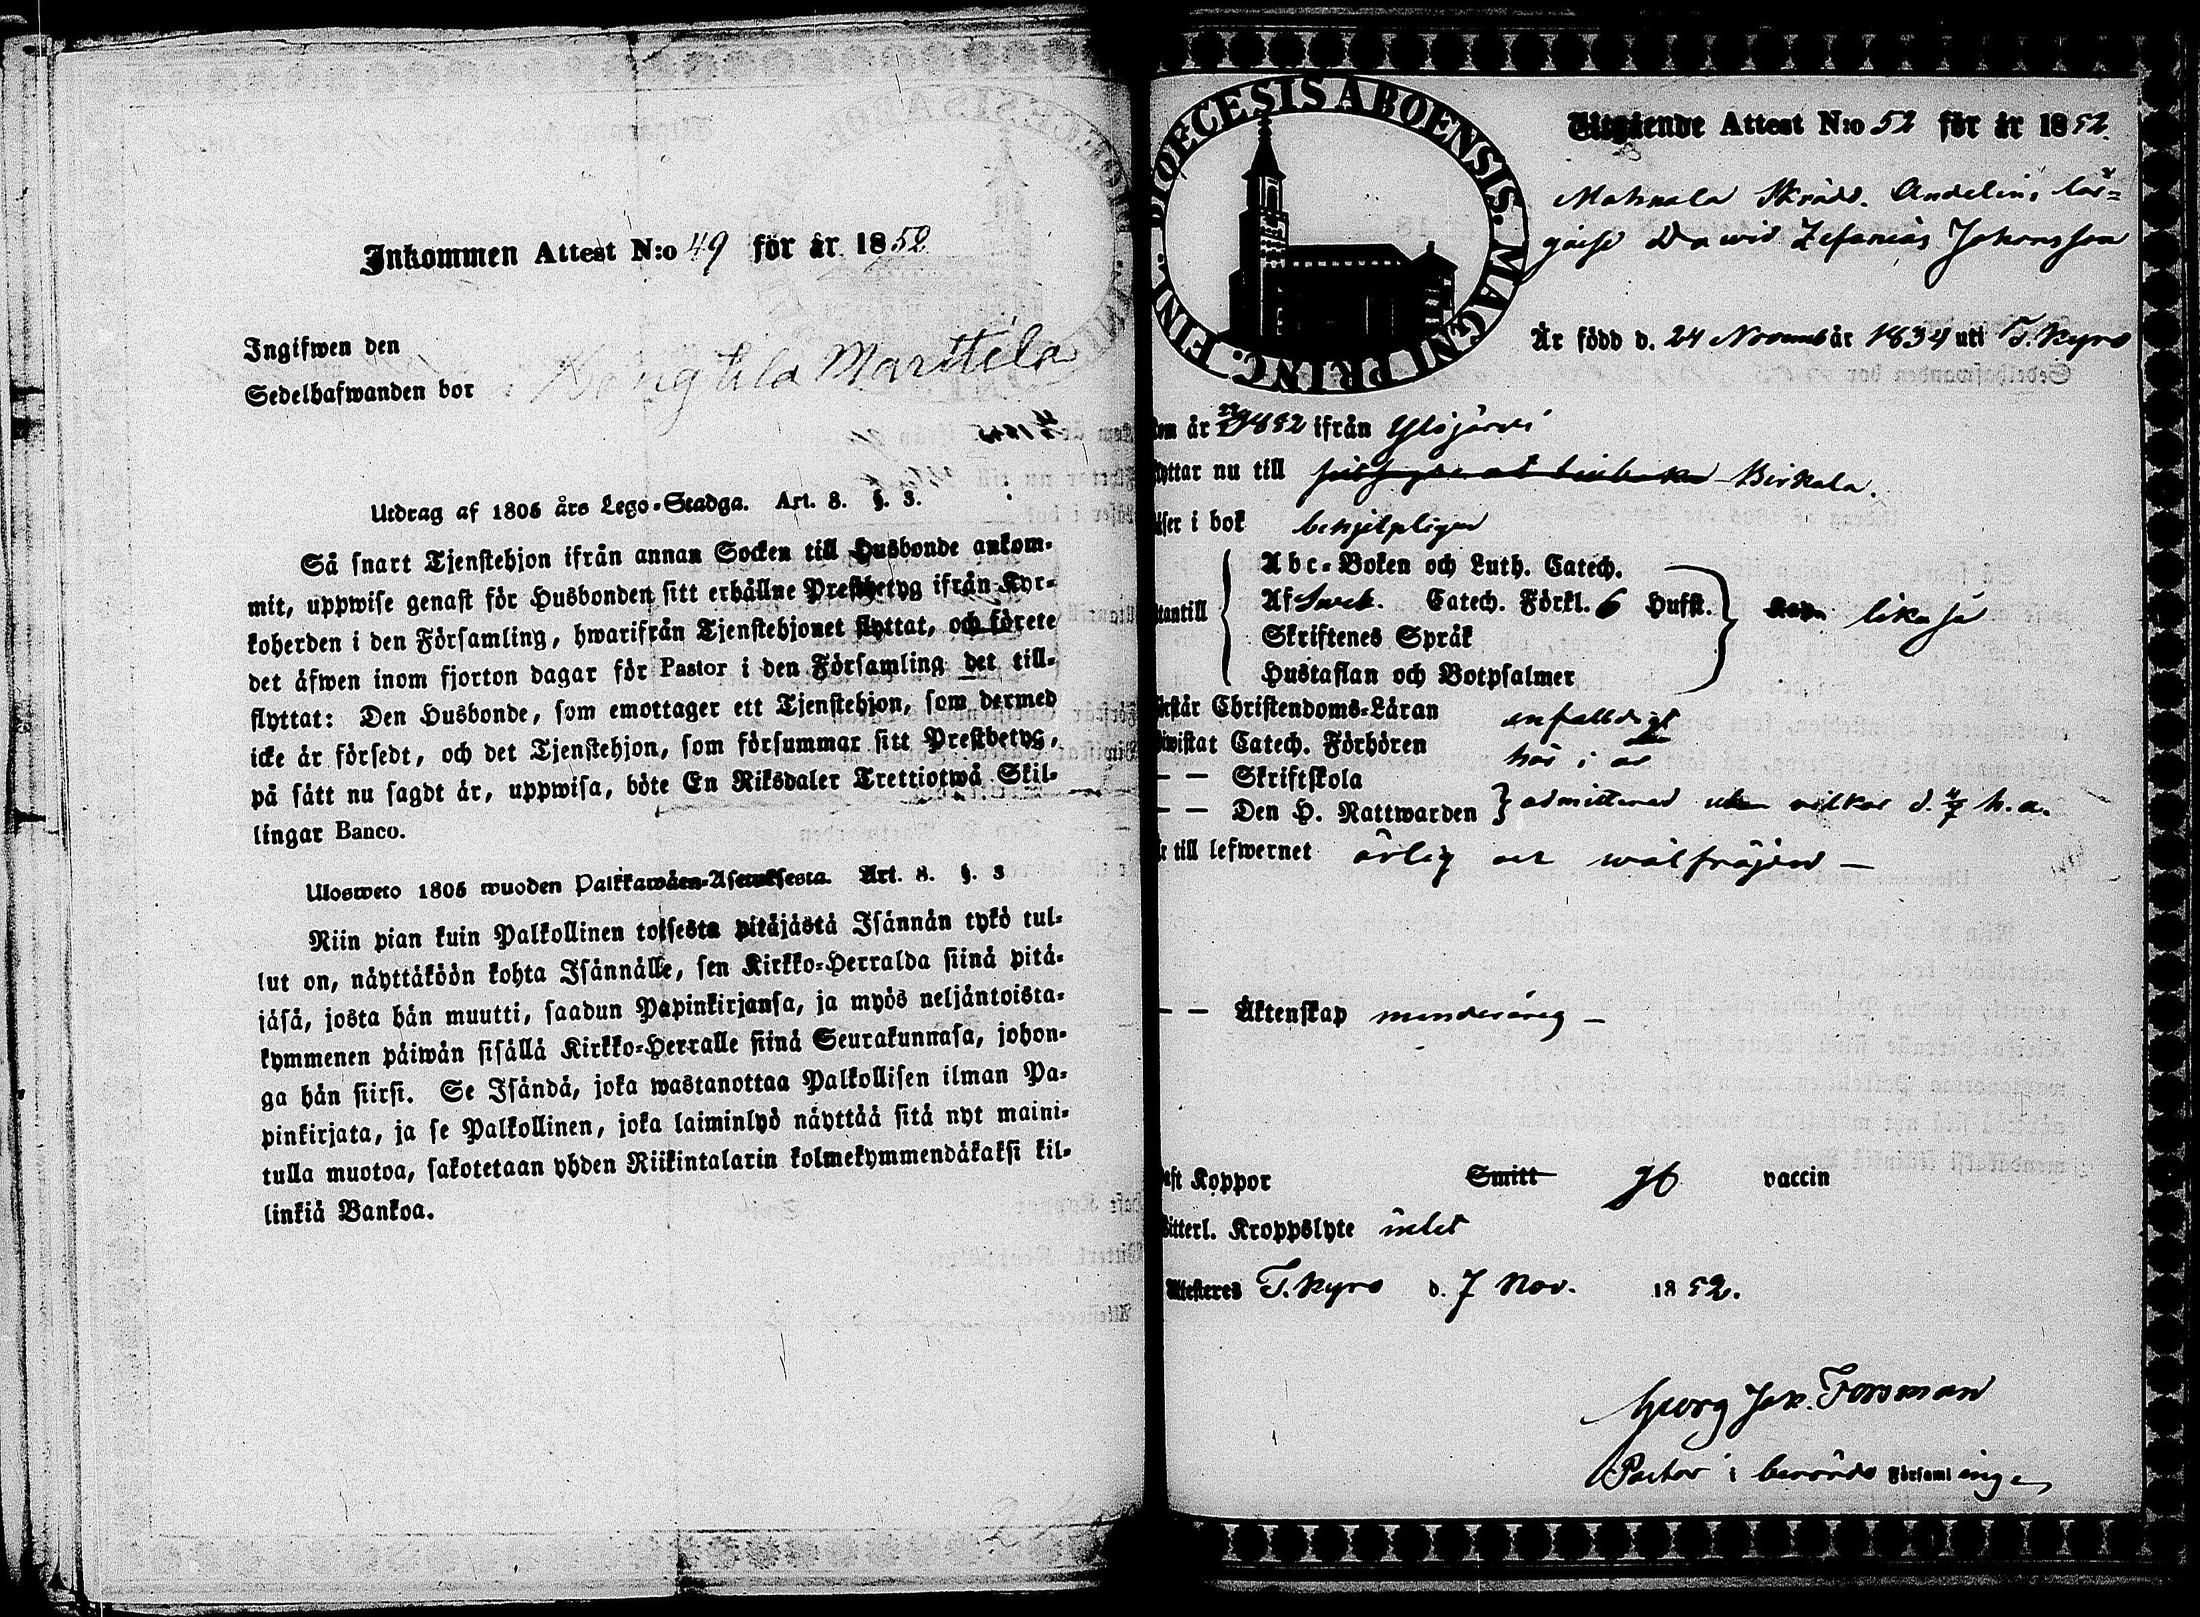 Inkommen Attest N:o 49 för år 1852
Ingifwen den
Sedelhafwanden bor Kongtila Marttela
Utdrag af 1805 års Lego-Stadga. Art. 8. §. 3.
Så snart Tjenstehjon ifrån annan Socken till Husbonde ankom-
mit, uppwise genast för Husbonden sitt erhållne Prestbetyg ifrån Kyr-
koherden i den Församling, hwarifrån Tjenstehjonet flyttat, och förete
det äfwen inom fjorton dagar för Pastor i den Församling det till-
flyttat: Den Husbonde, som emottager ett Tjenstehjon, som dermed
icke är försedt, och det Tjenstehjon, som försummar sitt Prestbetyg,
på sätt nu sagdt är, uppwisa, böte En Riksdaler Trettiotwå Skil-
lingar Banco.
Ulosweto 1805 wuoden Palkkawäen-Asetuksesta. Art. 8. §. 3
Niin pian kuin Palkollinen toisesta pitäjästä Isännän tykö tul-
lut on, näyttäköön kohta Isännälle, sen Kirkko-Herralda siinä pitä-
jäsä, josta hän muutti, saadun Papinkirjansa, ja myös neljäntoista-
kymmenen päiwän sisällä Kirkko-Herralle siinä Seurakunnasa, johon-
ga hän siirsi. Se Isändä, joka wastanottaa Palkollisen ilman Pa-
pinkirjata, ja se Palkollinen, joka laiminlyö näyttää sitä nyt maini-
tulla muotoa, sakotetaan yhden Riikintalarin kolmekymmendäkaksi kil-
linkiä Bankoa.
DIOECESIS ABOENSIS. MAGNI PRINC. FINL.
Utgående Attest N:o 52 för år 1852.
Mahnala Skrädd. Andelins lär-
gosse David Zefanias Johansson
Är född d. 24 Novemb år 1834 uti T. Kyro
kom år 1852 ifrån Ylöjärvi
flyttar nu till Birkala.
läser i bok behjelpligen
utantill
Abc-Boken och Luth. Catech.
Af Sveb. Catech. Förkl. 6 Hufst. lika så
Skriftenes Språk
Hustaflan och Botpsalmer
förstår Christendoms-Läran enfalldigt
biwistat Catech. Förhören här i år
— — Skriftskola
— — Den H. Nattwarden admitterad utan vilkor d. 4/7 h.a.
är till lefwernet ärlig och wälfräjdad —
— — Äktenskap minderårig —
haft Koppor Smitt gt vaccin
witterl. Kroppslyte intet
Attesteres T. Kyro d. 7 Nov. 1852.
Georg Jak. Forsman
Pastor i berörde Församlingen